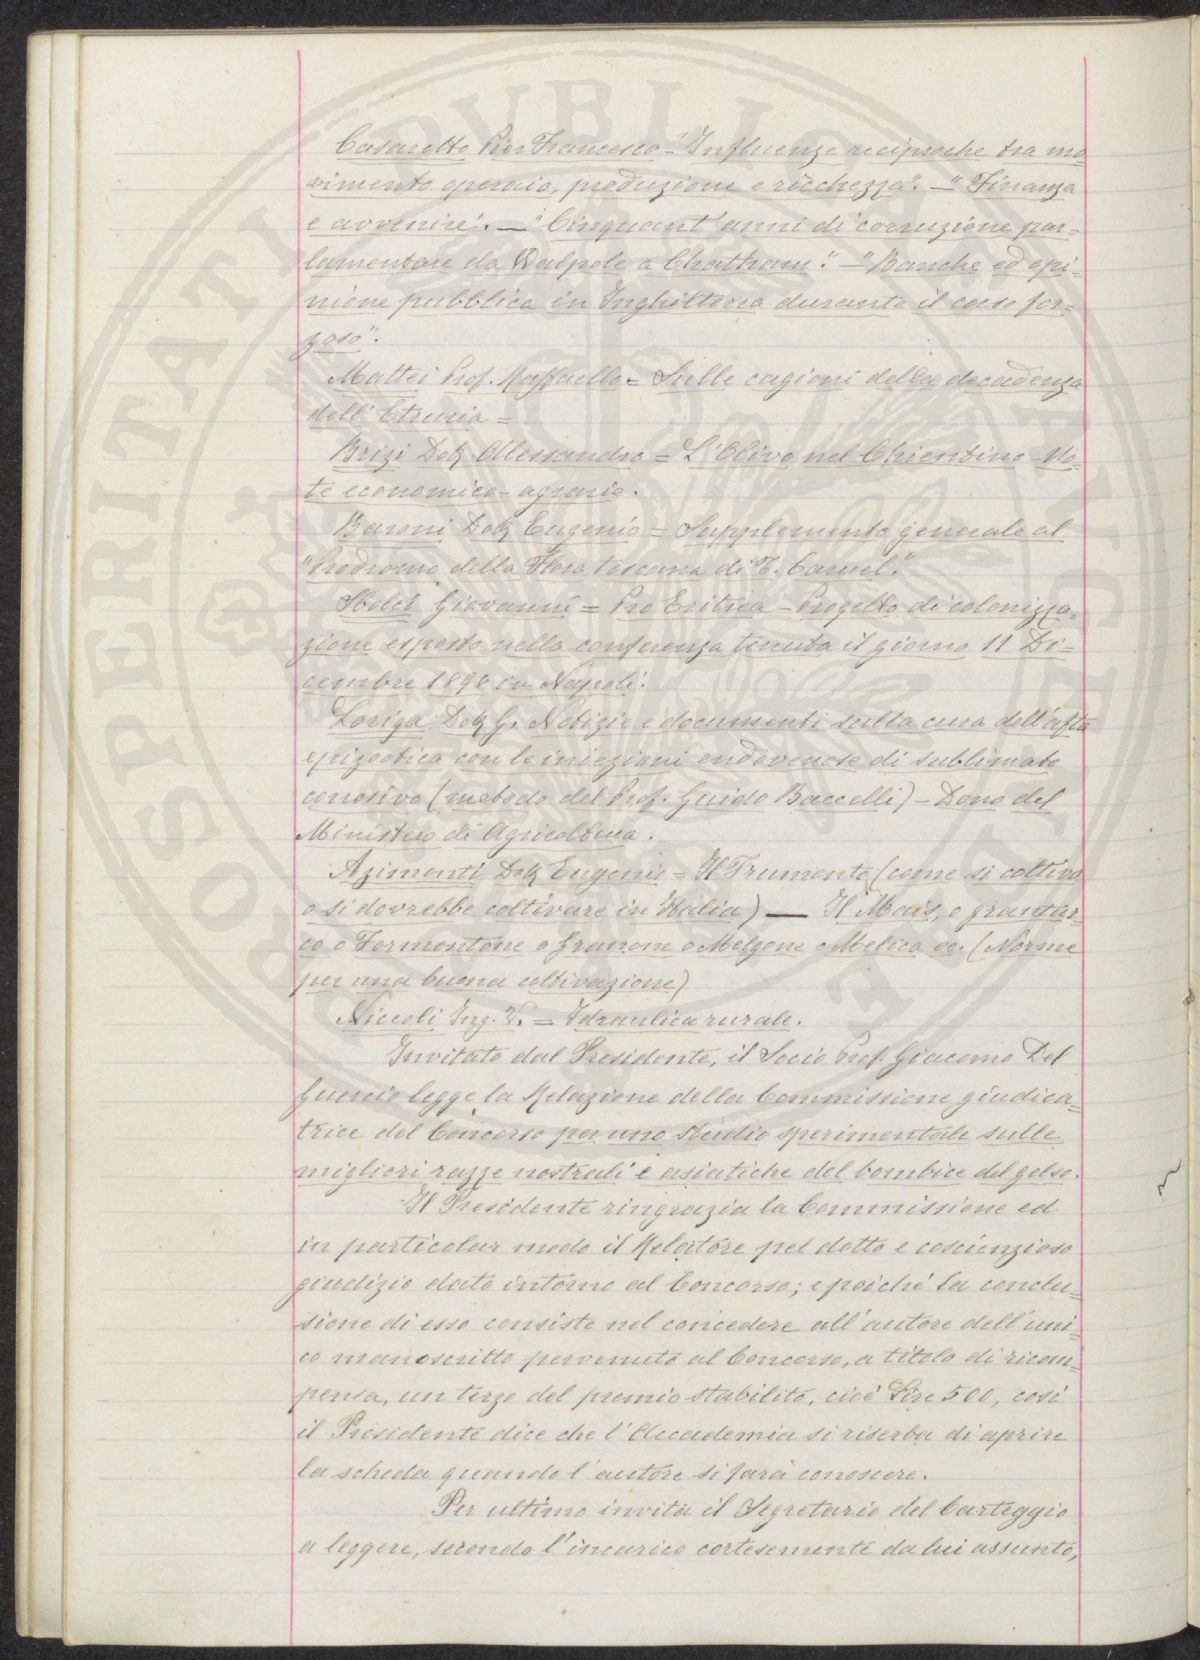 Casaretto Pier Francesco - "Influenze reciproche tra mo
vimento operaio, produzione e ricchezza". - "Finanza
e avvenire". - "Cinquant'anni di corruzione par=
lamentare da Walpole a Chatham". - "Banche ed opi=
nione pubblica in Inghilterra durante il corso for=
zoso".
Mattei Prof. Raffaello = Sulle cagioni della decadenza
dell'Etruria =
Brizi Dott. Alessandro = L'Olivo nel Chientino - No=
te economico-agrarie.
Baroni Dott. Eugenio = Supplemento generale al
"Prodromo della Flora toscana di T. Caruel."
Stolci Giovanni = Pro Eritrea - Progetto di colonizza=
zione esposto nella conferenza tenuta il giorno 11 Di=
cembre 1898 in Napoli.
Loriga Dott. G. Notizie e documenti sulla cura dell'afta
epizootica con le iniezioni endovenose di sublimato
corrosivo (metodo del Prof. Guido Baccelli) - Dono del
Ministero di Agricoltura.
Azimonti Dott. Eugenio = Il Frumento (come si coltiva
o si dovrebbe coltivare in Italia) — Il Mais, o grantur=
co o Formentone o Granone o Melgone o Melica ec. (Norme
per una buona coltivazione)
Niccoli Ing. V. = Idraulica rurale.
Invitato dal Presidente, il Socio Prof. Giacomo Del
Guercio legge la Relazione della Commissione giudica=
trice del Concorso per uno studio sperimentale sulle
migliori razze nostrali e asiatiche del bombice del gelso.
Il Presidente ringrazia la Commissione ed
in particolar modo il Relatore pel dotto e coscienzioso
giudizio dato intorno al Concorso; e poiché la conclu=
sione di esso consiste nel concedere all'autore dell'uni=
co manoscritto pervenuto al Concorso, a titolo di ricom=
pensa, un terzo del premio stabilito, cioè Lire 500, così
il Presidente dice che l'Accademia si riserba di aprire
la scheda quando l'autore si farà conoscere.
Per ultimo invita il Segretario del Carteggio
a leggere, secondo l'incarico cortesemente da lui assunto,
PROSPERITATI PVBLICAE